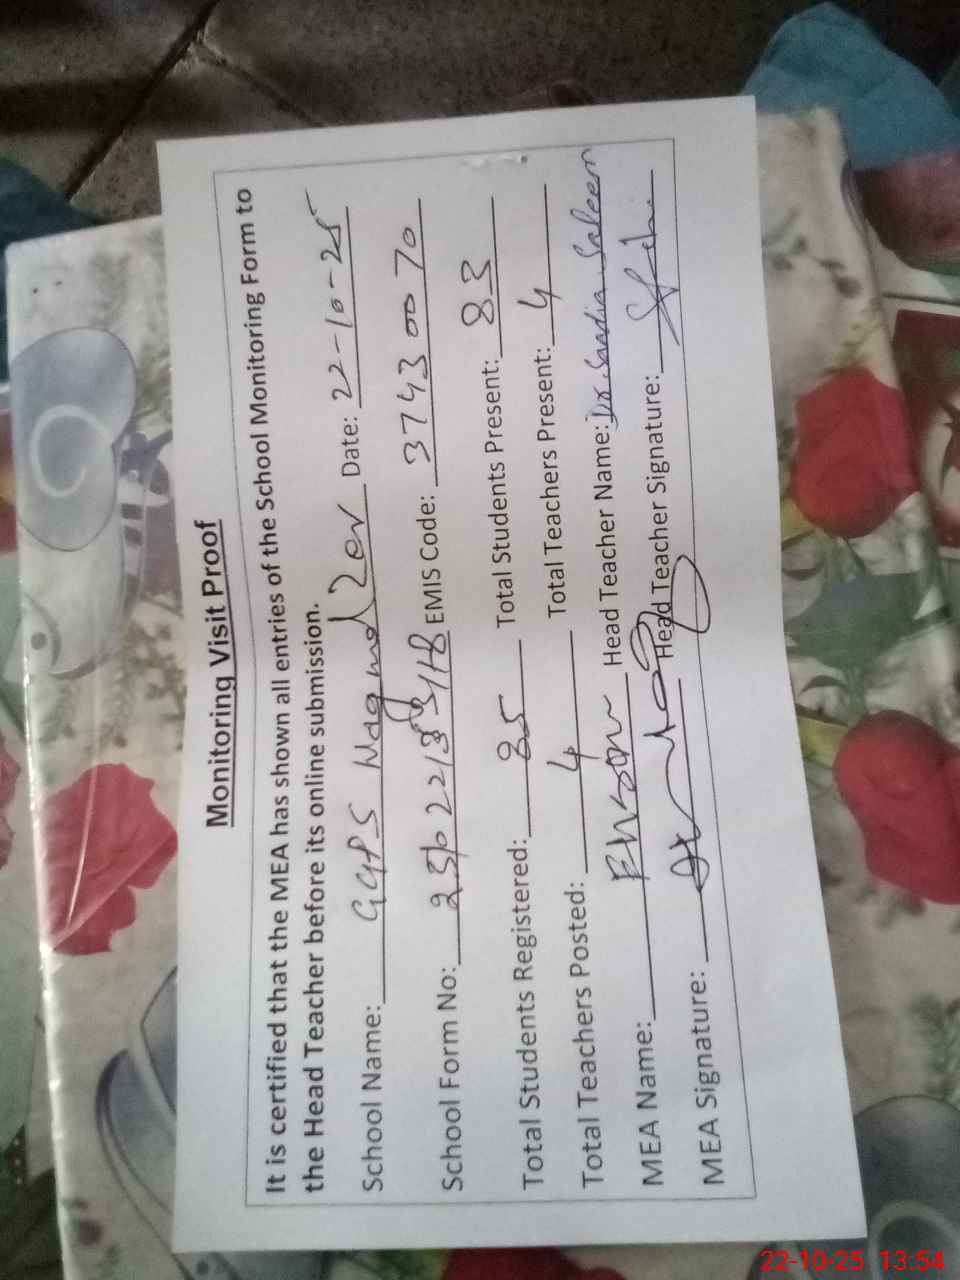 Monitoring Visit Proof
It is certified that the MEA has shown all entries of the School Monitoring Form to
the Head Teacher before its online submission.
School Name: GGPS Date: 22-10-25
School Form No: EMIS Code: 37430070
Total Students Registered: 85 Total Students Present: 83
Total Teachers Posted: 4 Total Teachers Present: 4
MEA Name: Head Teacher Name: Dr. Sandia Saleem
MEA Signature: Head Teacher Signature:
22-10-25 13:54